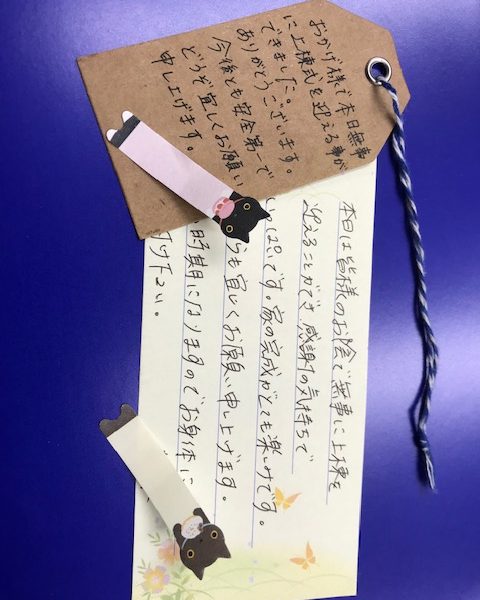 おかげ様で本日無事
に上棟式を迎える事が
できました。
ありがとうございます。
今後とも安全第一で
どうぞ宜しくお願い
申し上げます。
本日は皆様のお陰で無事に上棟を
迎えることができ感謝の気持ちで
いっぱいです。家の完成がとても楽しみです。
らも宜しくお願い申し上げます。
時期になりますのでお身体に
付け下さい。